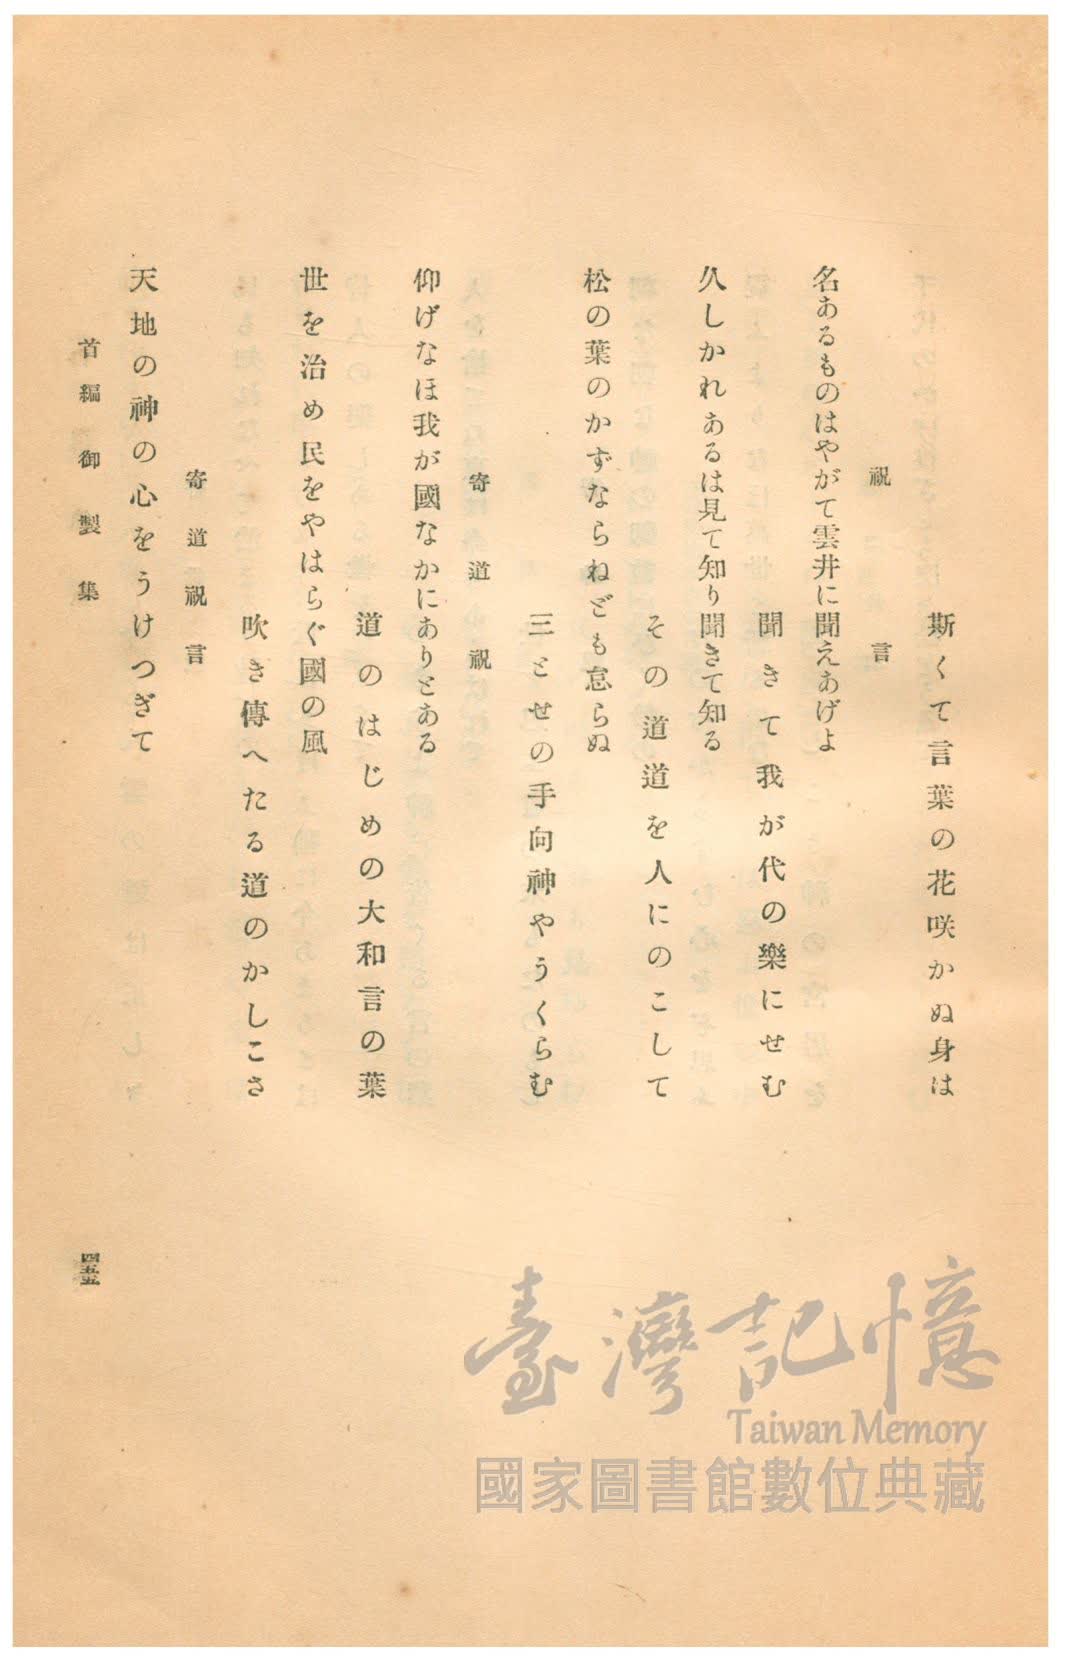 斯くて言葉の花咲かぬ身は
祝言
名あるものはやがて雲井に聞えあげよ
聞きて我が代の樂にせむ
久しかれあるは見て知り聞きて知る
その道道を人にのこして
松の葉のかずならねども怠らぬ
三とせの手向神やうくらむ
寄道祝
仰げなほ我が國なかにありとある
道のはじめの大和言の葉
世を治め民をやはらぐ國の風
吹き傳へたる道のかしこさ
寄道祝言
天地の神の心をうけつぎて
首編御製集
四五五
臺灣記憶
Taiwan Memory
國家圖書館數位典藏